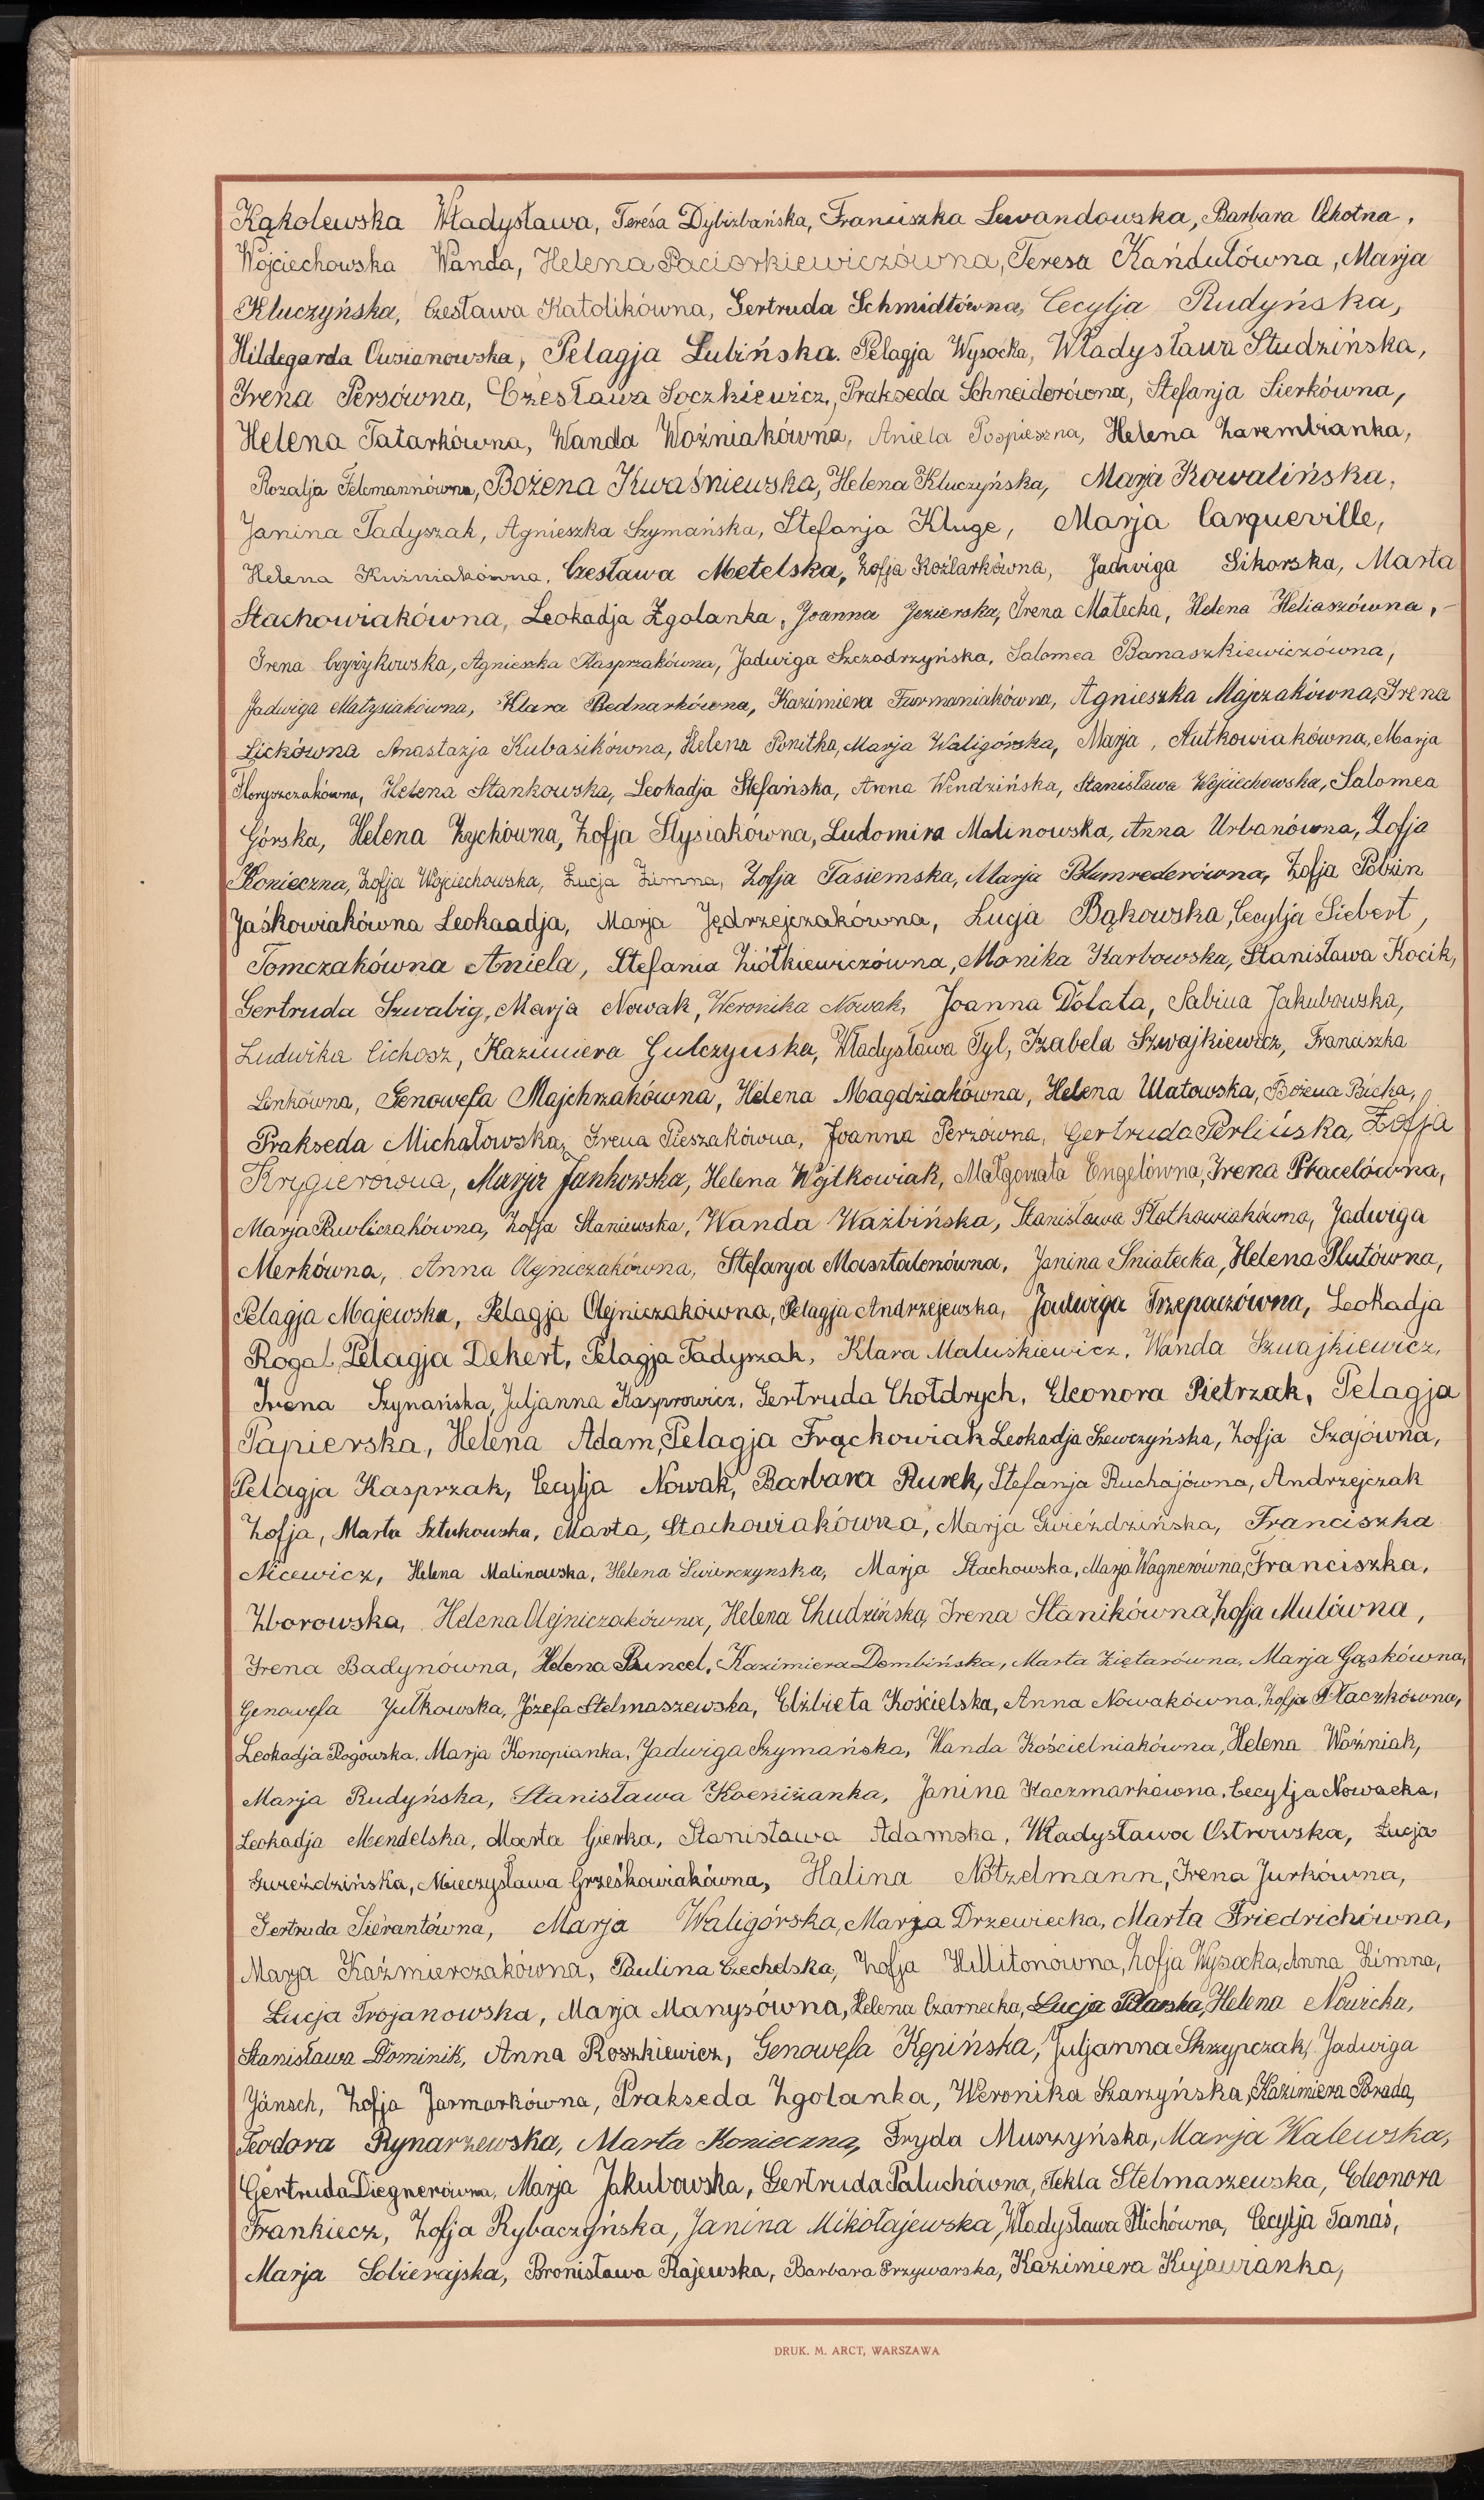 Kąkolewska Władysława, Teresa Dybizbańska, Franciszka Lewandowska, Barbara Ochotna,
Wojciechowska Wanda, Helena Paciorkiewiczówna, Teresa Kańdułówna, Marja
Kluczyńska, Czesława Katolikówna, Gertruda Schmidtówna, Cecylja Rudyńska,
Hildegarda Owsianowska, Pelagja Lubińska. Pelagja Wysocka, Władysława Studzińska,
Irena Persówna, Czesława Soczkiewicz, Prakseda Schneiderówna, Stefanja Sierkówna,
Helena Tatarkówna, Wanda Woźniakówna, Aniela Pospieszna, Helena Zarembianka,
Rozalja Felcmannówna, Bożena Kwaśniewska, Helena Kluczyńska, Marja Kowalińska,
Janina Tadyszak, Agnieszka Szymańska, Stefanja Kluge, Marja Carqueville,
Helena Kuźniakówna, Czesława Metelska, Zofja Koźlarkówna, Jadwiga Sikorska, Marta
Stachowiakówna, Leokadja Zgolanka, Joanna Jezierska, Irena Małecka, Helena Heliaszówna,
Irena Czyżykowska, Agnieszka Kasprzakówna, Jadwiga Szczodrzyńska, Salomea Banaszkiewiczówna,
Jadwiga Małysiakówna, Klara Bednarkówna, Kazimiera Furmaniakówna, Agnieszka Majczakówna, Irena
Lickówna Anastazja Kubasikówna, Helena Ponitka, Marja Waligórska, Marja, Autkowiakówna, Marja
Floryszczakówna, Helena Stankowska, Leokadja Stefańska, Anna Wendzińska, Stanisława Wojciechowska, Salomea
Górska, Helena Zychówna, Zofja Stysiakówna, Ludomira Malinowska, Anna Urbanówna, Zofja
Konieczna, Zofja Wojciechowska, Łucja Zimna, Zofja Tasiemska, Marja Blimrederówna, Zofja Pobzin
Jaśkowiakówna Leokaadja, Marja Jędrzejczakówna, Łucja Bąkowska, Cecylja Siebert,
Tomczakówna Aniela, Stefania Ziółkiewiczówna, Monika Karbowska, Stanisława Kocik,
Gertruda Szwabig, Marja Nowak, Weronika Nowak, Joanna Dolata, Sabina Jakubowska,
Ludwika Cichosz, Kazimiera Gulczyńska, Władysława Tyl, Izabela Szwajkiewicz, Franciszka
Linkówna, Genowefa Majchrzakówna, Helena Magdziakówna, Helena Ulatowska, Bożena Bicka,
Prakseda Michałowska, Irena Pieszakówna, Joanna Perzówna, Gertruda Perlińska, Zofja
Krygierówna, Marja Jankowska, Helena Wojtkowiak, Małgorzata Engelówna, Irena Ptacelówna,
Marja Pawliczakówna, Zofja Staniewska, Wanda Ważbińska, Stanisława Płotkowiakówna, Jadwiga
Merkówna, Anna Olejniczakówna, Stefanja Masztalerzówna, Janina Śniatecka, Helena Plutówna,
Pelagja Majewska, Pelagja Olejniczakówna, Pelagja Andrzejewska, Jadwiga Trzepaczówna, Leokadja
Rogal, Pelagja Dekert, Pelagja Tadyszak, Klara Maluśkiewicz, Wanda Szwajkiewicz,
Irena Szynańska, Juljanna Kasprowicz, Gertruda Chołdrych, Eleonora Pietrzak, Pelagja
Papierska, Helena Adam, Pelagja Frąckowiak Leokadja Szewczyńska, Zofja Szajówna,
Pelagja Kasprzak, Cecylja Nowak, Barbara Rurek, Stefanja Ruchajówna, Andrzejczak
Zofja, Marta Sztukowska, Marta, Stachowiakówna, Marja Gwieździńska, Franciszka
Nicewicz, Helena Malinowska, Helena Świerczynska, Marja Stachowska, Marja Wagnerówna, Franciszka,
Zborowska, Helena Olejniczakówna, Helena Chudzińska, Irena Stanikówna, Zofja Mulówna,
Irena Badynówna, Helena Buncel, Kazimiera Dembińska, Marta Ziętarówna, Marja Gąskówna,
Genowefa Jutkowska, Józefa Stelmaszewska, Elżbieta Kościelska, Anna Nowakówna, Zofja Ptaczkówna,
Leokadja Rogowska, Marja Konopianka, Jadwiga Szymańska, Wanda Kościelniakówna, Helena Woźniak,
Marja Rudyńska, Stanisława Koeniżanka, Janina Kaczmarkówna, Cecylja Nowacka,
Leokadja Mendelska, Marta Gierka, Stanisława Adamska, Władysława Ostrowska, Łucja
Gwieździńska, Mieczysława Grześkowiakówna, Halina Nötzelmann, Irena Jurkówna,
Gertruda Sierantówna, Marja Waligórska, Marja Drzewiecka, Marta Friedrichówna,
Marja Kaźmierczakówna, Paulina Czechelska, Zofja Hillitonówna, Zofja Wysocka, Anna Zimna,
Łucja Trojanowska, Marja Manysówna, Helena Czarnecka, Łucja Pilarska, Helena Nowicka,
Stanisława Dominik, Anna Roszkiewicz, Genowefa Kępińska, Juljanna Skrzypczak, Jadwiga
Jänsch, Zofja Jarmarkówna, Prakseda Zgolanka, Weronika Szarzyńska, Kazimiera Brada,
Teodora Rynarzewska, Marta Konieczna, Fryda Muszyńska, Marja Walewska,
Gertruda Diegnerówna, Marja Jakubowska, Gertruda Paluchówna, Tekla Stelmaszewska, Eleonora
Frankiecz, Zofja Rybaczyńska, Janina Mikołajewska, Władysława Plichówna, Cecylja Tanaś,
Marja Sobierajska, Bronisława Rajewska, Barbara Przywarska, Kazimiera Kujawianka,
DRUK. M. ARCT, WARSZAWA